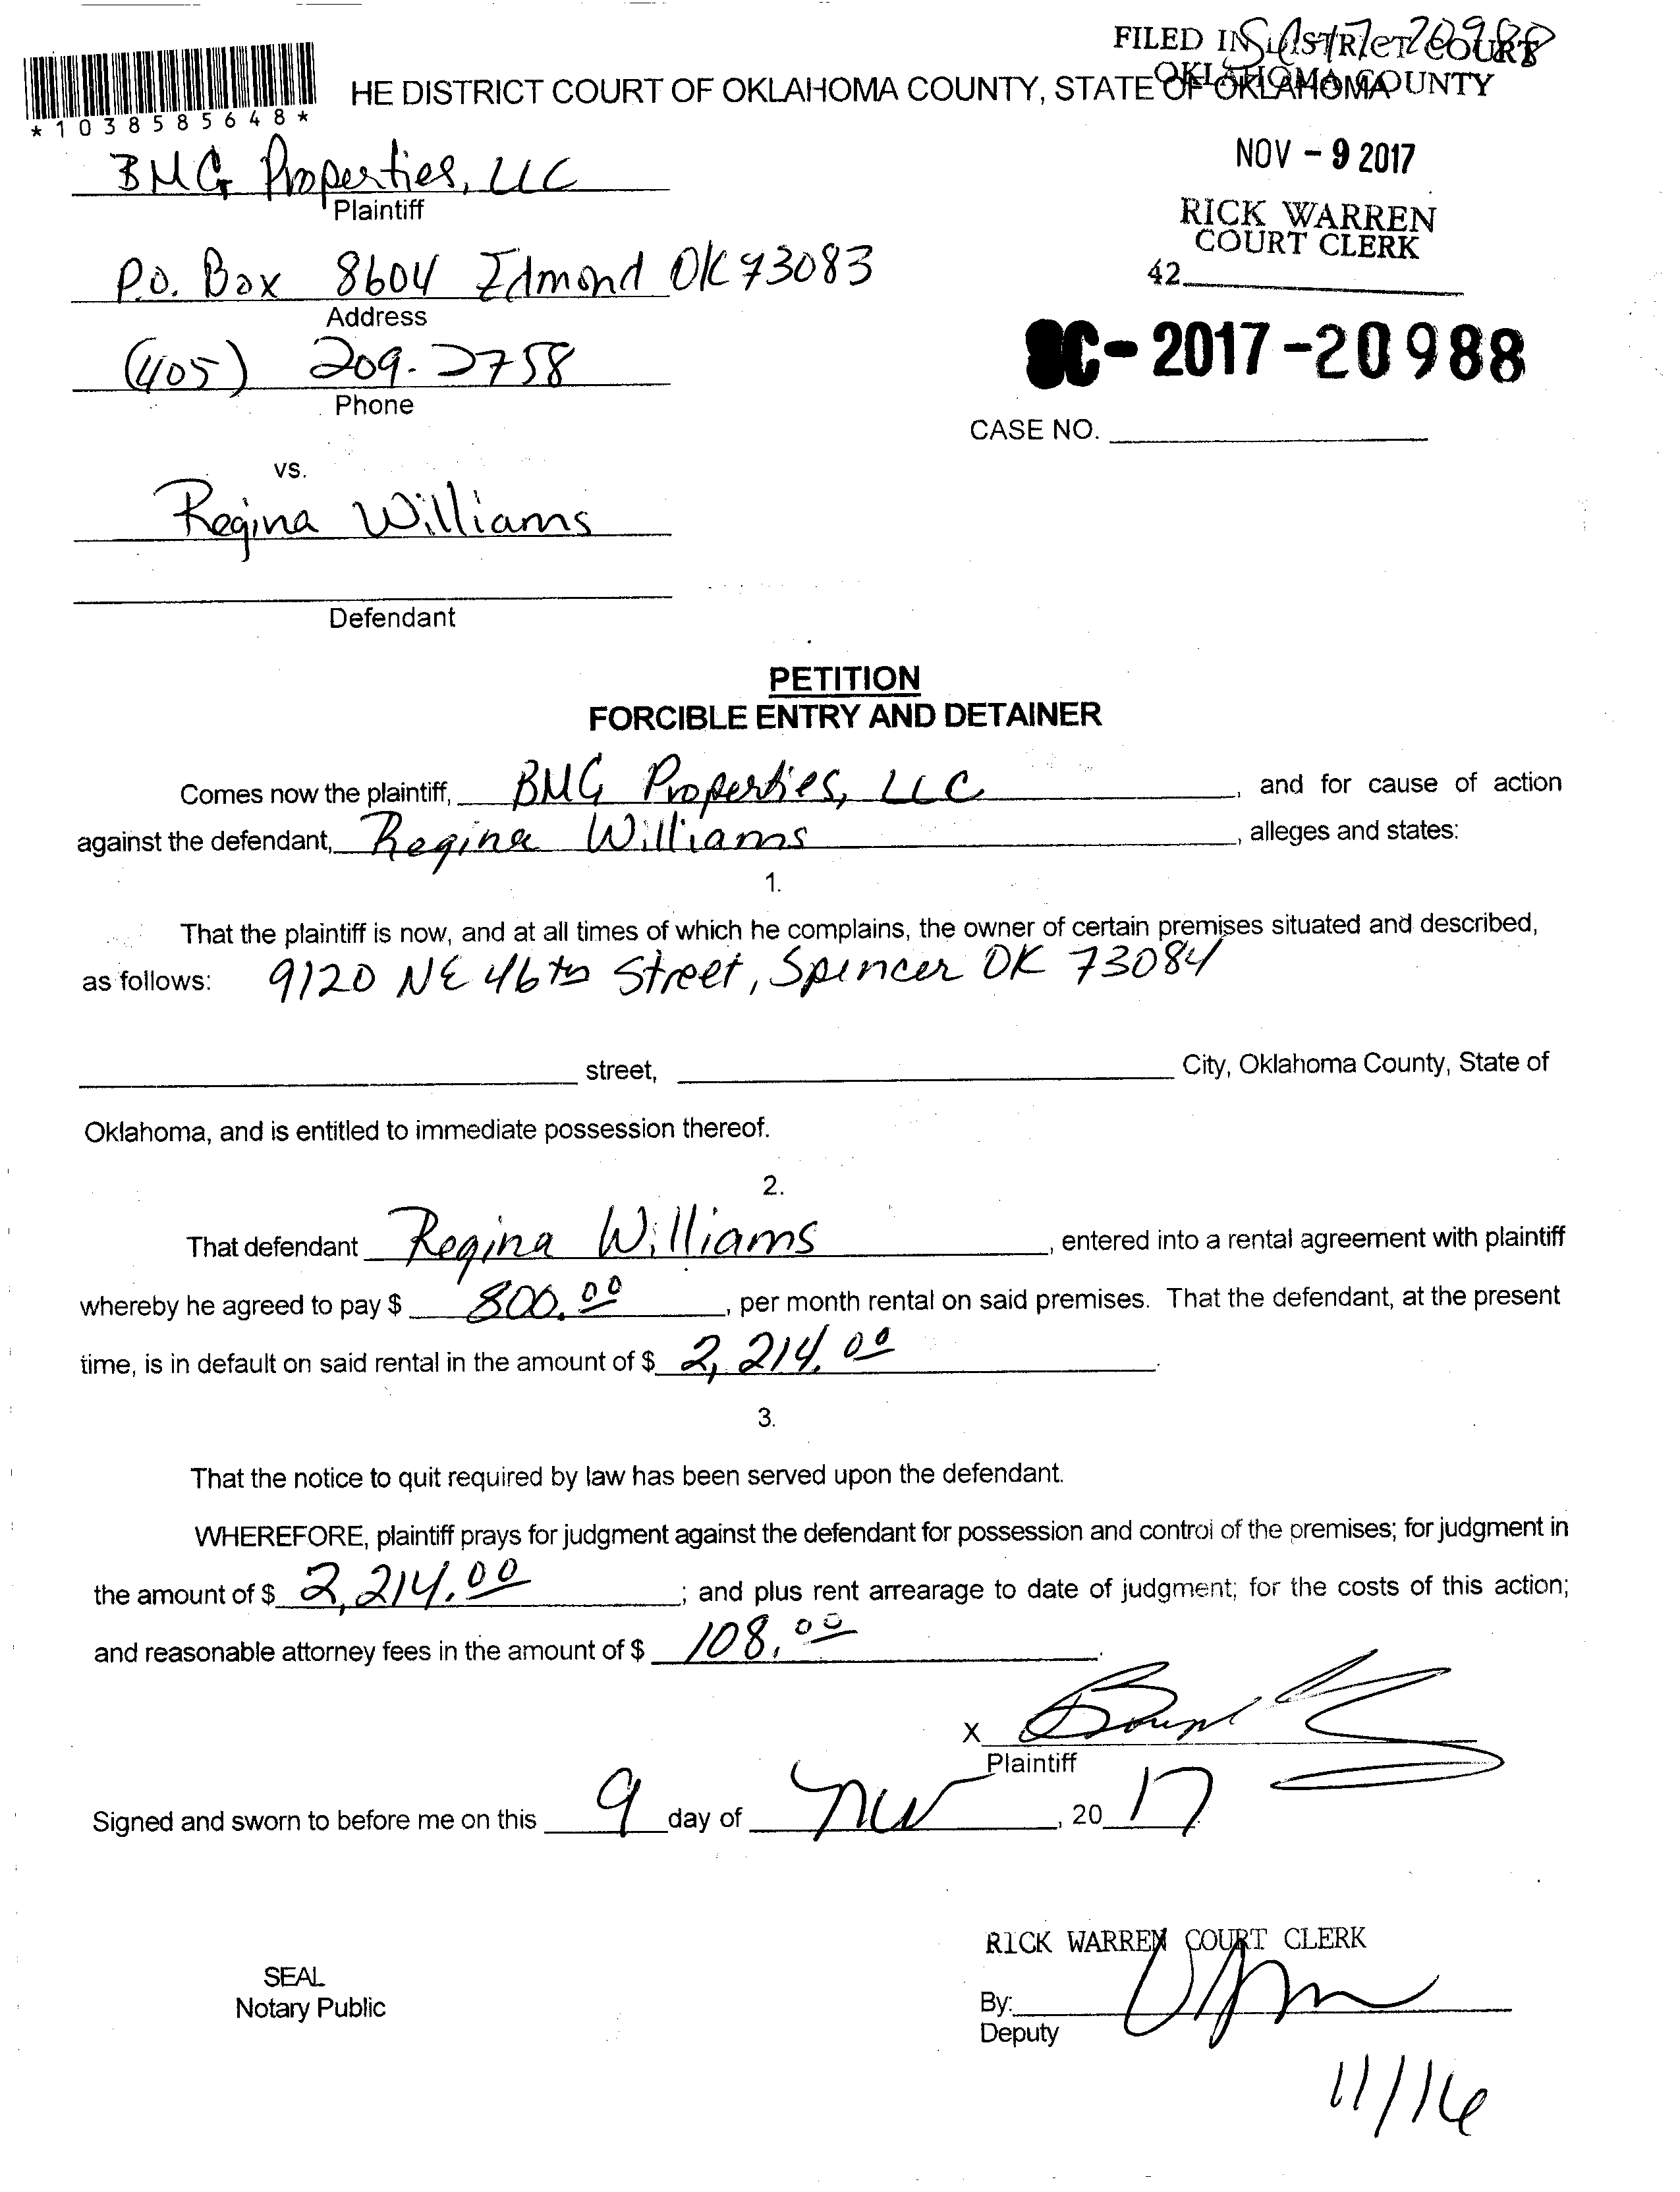 FILED IN DISTRICT COURT
OKLAHOMA COUNTY
SC 17 20988
*1038585648*
HE DISTRICT COURT OF OKLAHOMA COUNTY, STATE OF OKLAHOMA
NOV - 9 2017
BMG Properties, LLC
Plaintiff
RICK WARREN
COURT CLERK
42
P.O. Box 8604 Edmond OK 73083
Address
(405) 209-2758
Phone
SC-2017-20988
CASE NO.
vs.
Regina Williams
Defendant
PETITION
FORCIBLE ENTRY AND DETAINER
Comes now the plaintiff, BMG Properties, LLC, and for cause of action
against the defendant, Regina Williams, alleges and states:
1.
That the plaintiff is now, and at all times of which he complains, the owner of certain premises situated and described,
as follows: 9120 NE 46th Street, Spencer OK 73084
street, City, Oklahoma County, State of
Oklahoma, and is entitled to immediate possession thereof.
2.
That defendant Regina Williams, entered into a rental agreement with plaintiff
whereby he agreed to pay $ 800.00, per month rental on said premises. That the defendant, at the present
time, is in default on said rental in the amount of $ 2,214.00.
3.
That the notice to quit required by law has been served upon the defendant.
WHEREFORE, plaintiff prays for judgment against the defendant for possession and control of the premises; for judgment in
the amount of $ 2,214.00; and plus rent arrearage to date of judgment; for the costs of this action;
and reasonable attorney fees in the amount of $ 108.00.
X
Plaintiff
Signed and sworn to before me on this 9 day of Nov, 2017
RICK WARREN COURT CLERK
SEAL
Notary Public
By:
Deputy
11/16